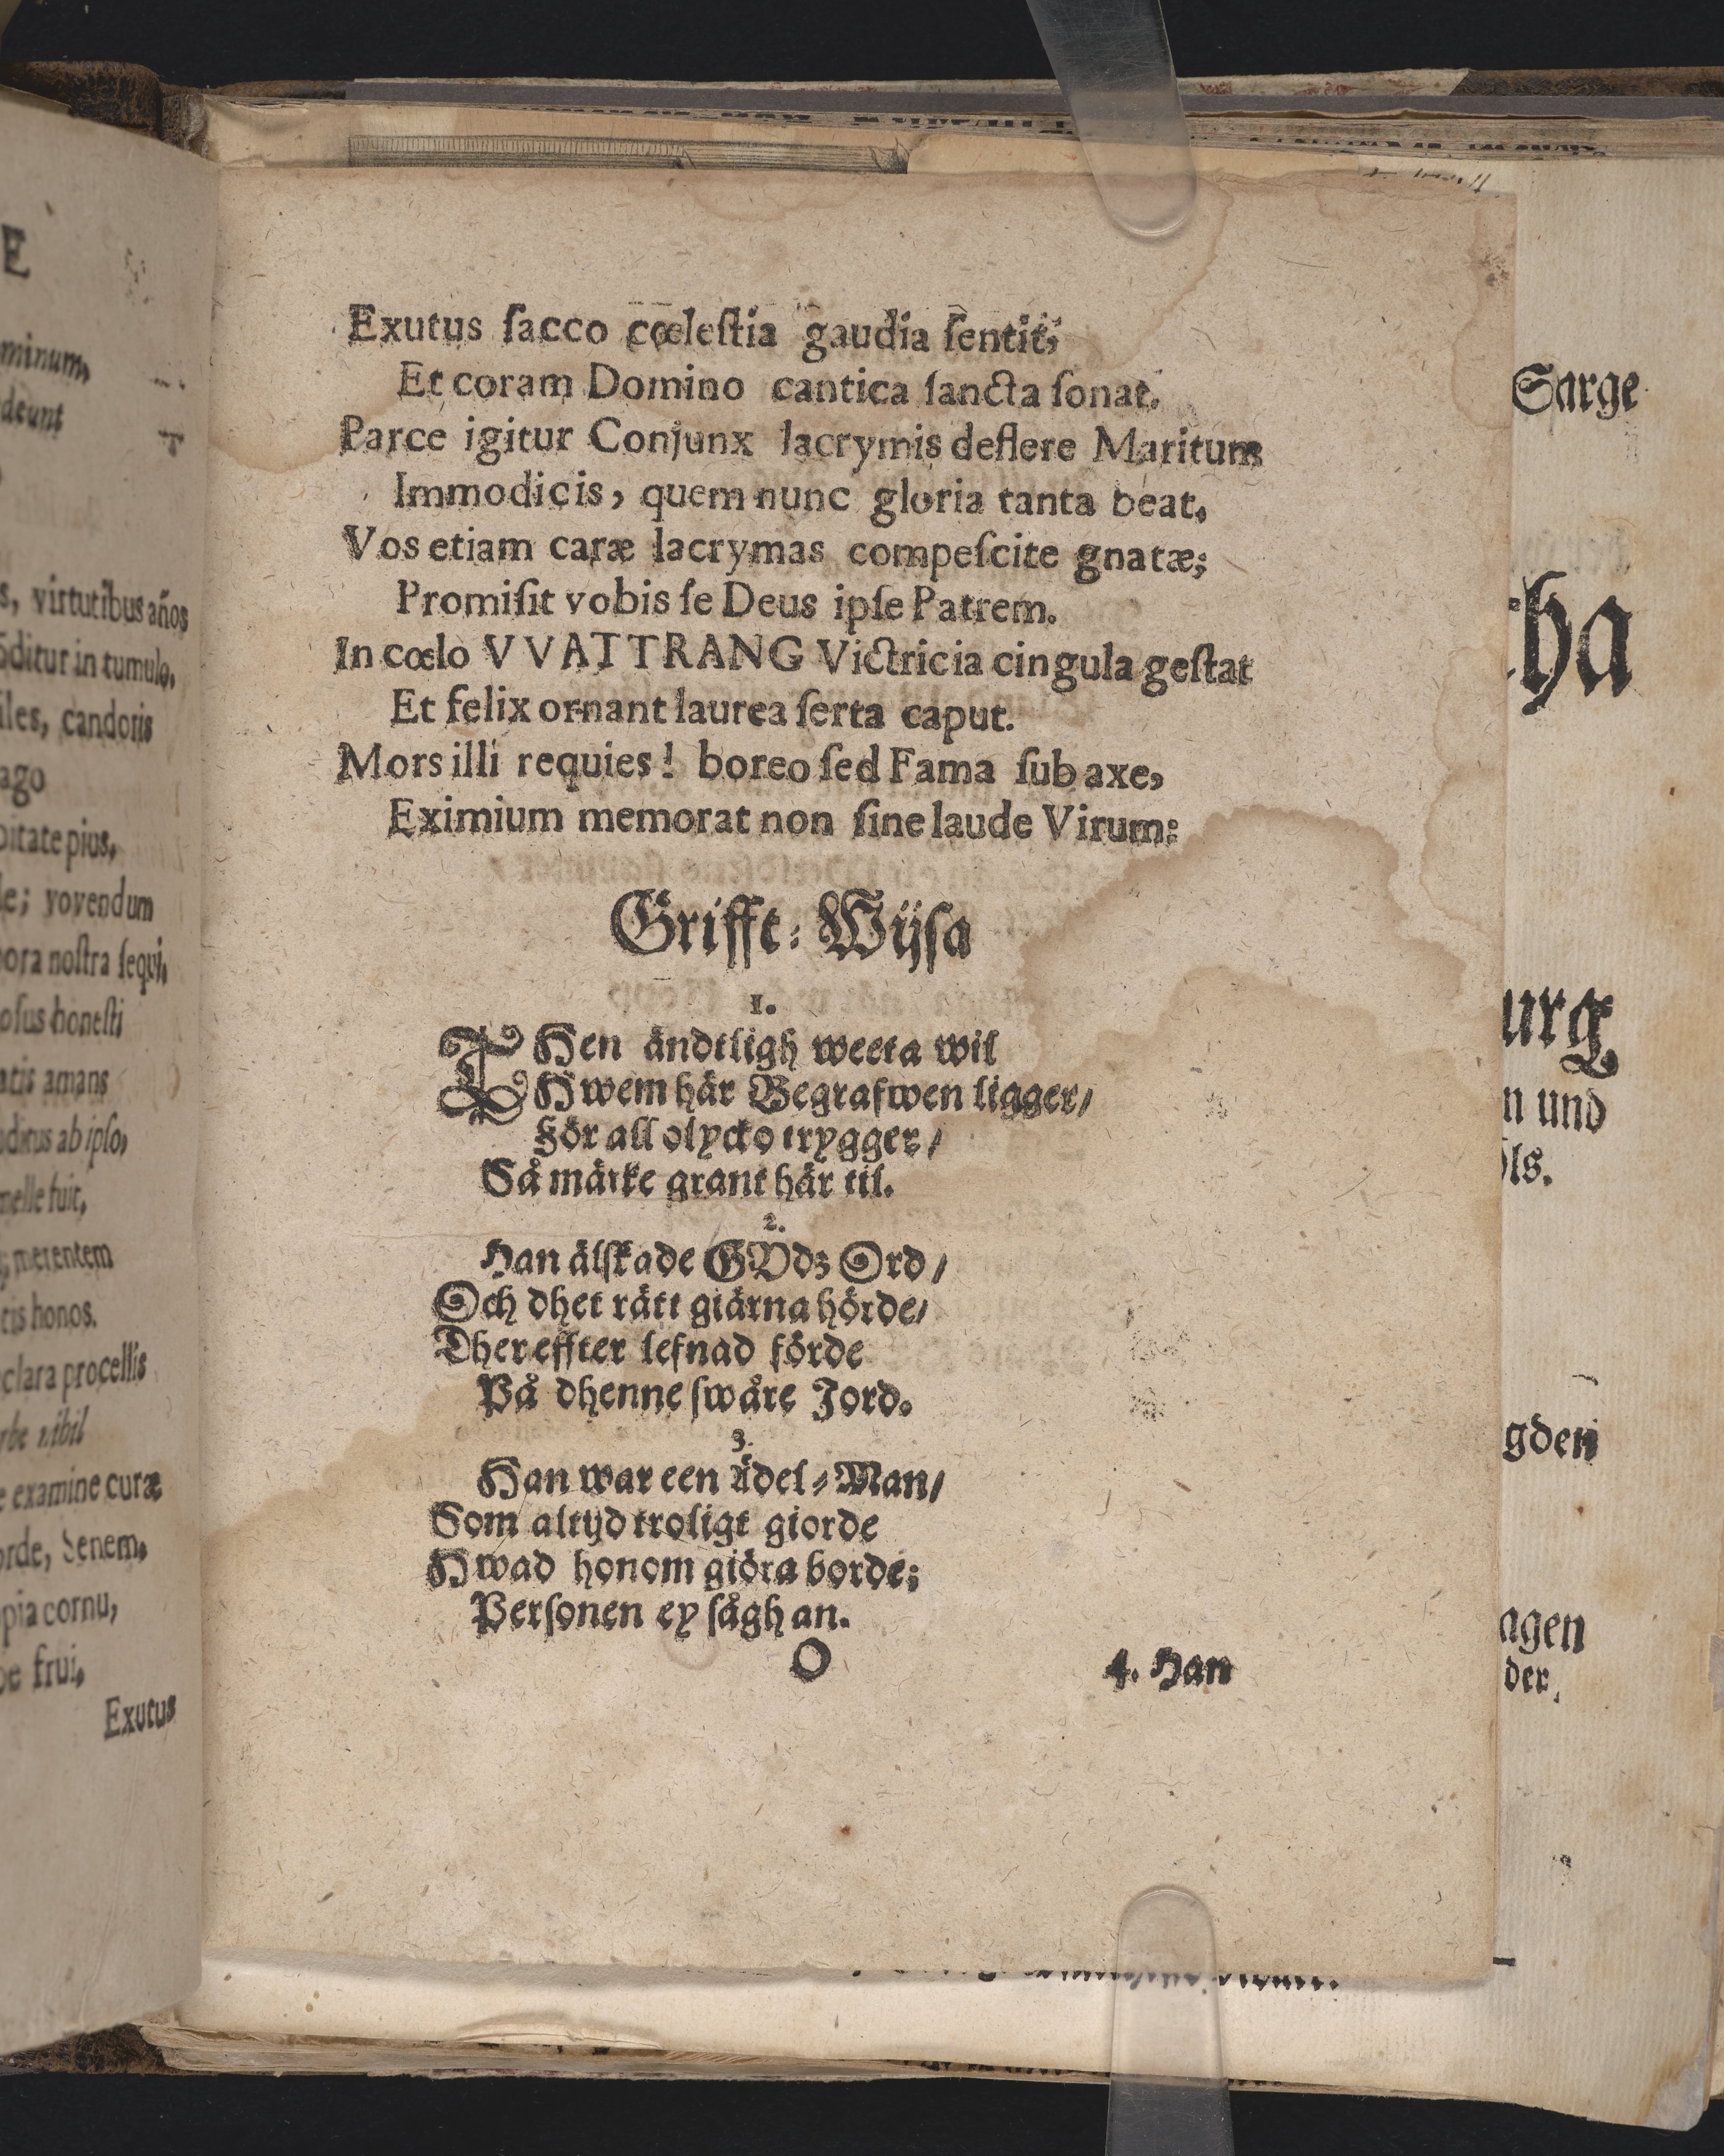 Exutus ſacco cœleſtia gaudia ſentit;
Et coram Domino cantica ſancta ſonat.
Parce igitur Conjunx lacrymis deflere Maritum
Immodicis, quem nunc gloria tanta beat,
Vos etiam caræ lacrymas compeſcite gnatæ;
Promiſit vobis ſe Deus ipſe Patrem.
In cœlo VVATTRANG Victricia cingula geſtat
Et felix ornant laurea ſerta caput.
Mors illi requies! boreo ſed Fama ſub axe,
Eximium memorat non ſine laude Virum:
Grifft-Wijſa
1.
THen ändtligh weeta wil
Hwem här Begrafwen ligger/
För all olycko trygger/
Så märke grant här til.
2.
Han älſkade GUdz Ord/
Och dhet rätt giärna hörde/
Ther effter lefnad förde
På dhenne ſwåre Jord.
3.
Han war een Ädel-Man/
Som altijd troligt giorde
Hwad honom giöra borde;
Perſonen ey ſågh an.
O 4. Han
minum,
deunt
virtutibus años
ditur in tumulo,
candoris
pius,
vovendum
noſtra ſequi,
honeſti
amans
ab ipſo,
fuit,
merentem
honos.
procellis
examine curæ
Senem,
cornu,
frui,
Exutus
Sarge
und